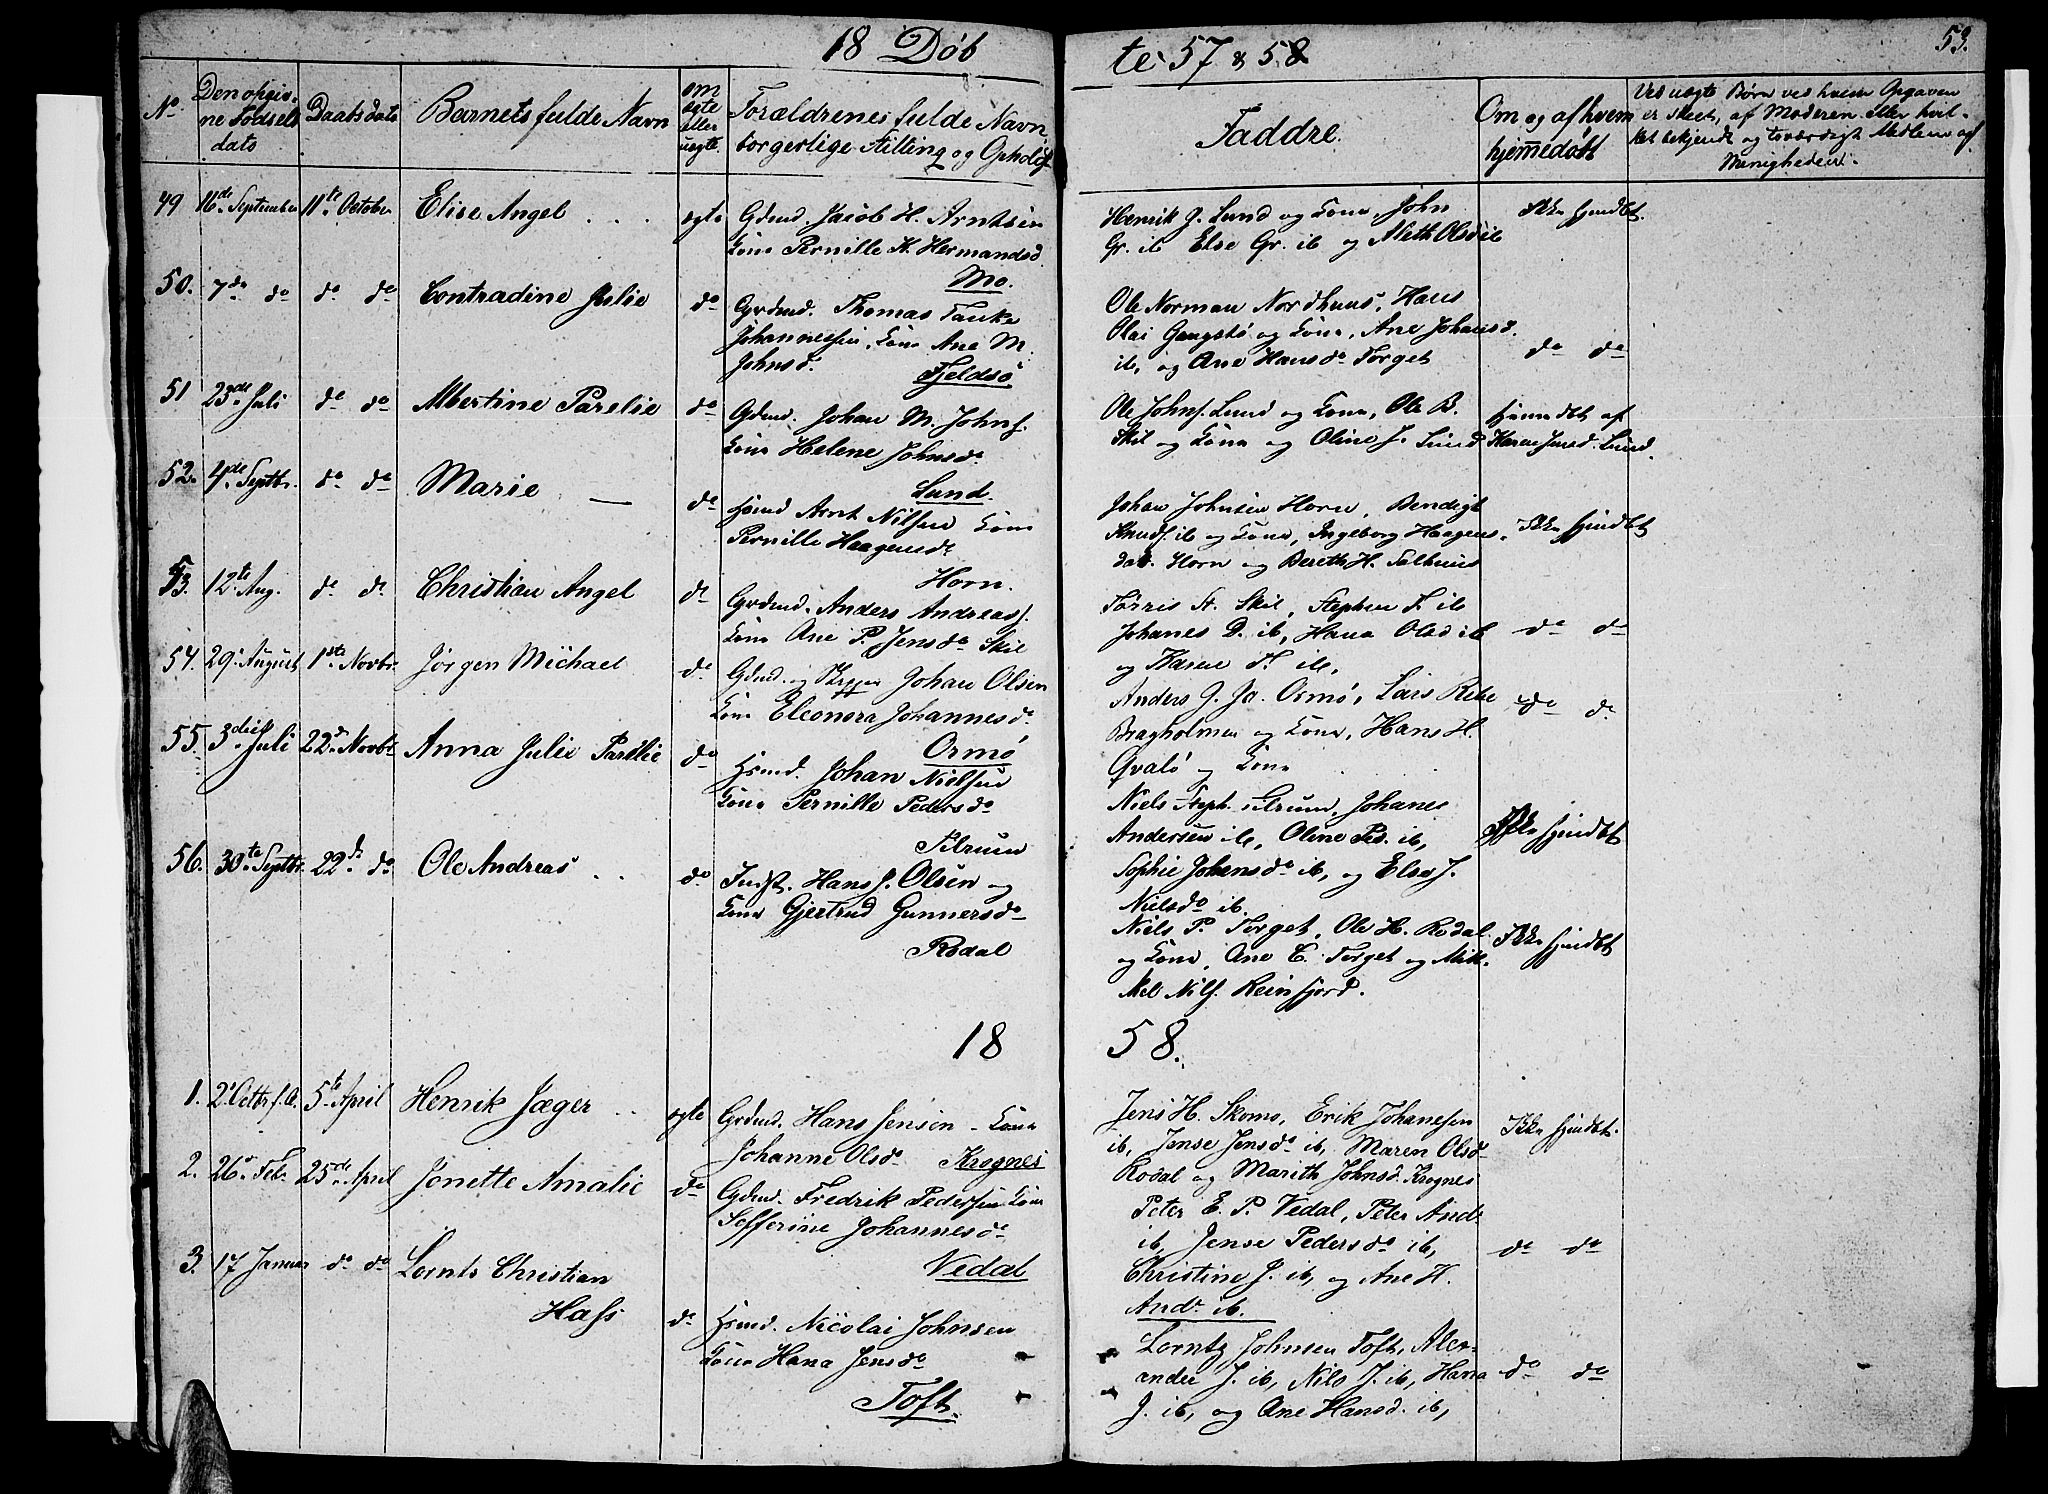 18 Døb
te 57 & 58
53.
No
Den opgiv-
ne Fødsels
dato
Daabsdato
Barnets fulde Navn
om
ægte
eller
uægte.
Forældrenes fulde Navn
borgerlige Stilling og Ophold
Faddre.
Om og af hvem
hjemmedøbt
Ved uægte Børn ved hvem Opgaven
er skeet, af Moderen eller hvil-
ket bekjendt og troværdigt Medlem af
Menigheden.
49 16de September 11te October Elise Angel ægte Gdmd. Jacob H. Arntsen
Kone Pernille H. Hermandsd.
Mo.
Henrik J. Lund og Kone, John
Gr. ib Else Gr. ib og Aleth Olsd ib
Ikke hjmdbt.
50. 7de do do do Contradine Julie do Grdmd. Thomas Tauke
Johannessen, Kone Ane M.
Johnsd. Fjeldsö
Ole Norman Nordhuus, Hans
Olai Gangstö og Kone, Ane Johansd.
ib, og Ane Hansdr Torget
do do
51 23de Juli do do Albertine Parelie do Gdmd. Johan M. Johns.
Kone Helene Johnsdr
Lund.
Ole Johns. Lund og Kone, Ole B.
Skil og Kone og Oline J. Lund
hjemmedbt af
Karen Jensd. Lund.
52. 4de Septbr. do do Marie do Hsmd Arnt Nilsen Kone
Pernille Haagensdr
Horn.
Johan Johnsen Horn, Bendigt
Knuds. ib og Kone, Ingeborg Haagens-
datr. Horn og Bereth H. Salhuus
Ikke hjmdbt
53. 12te Aug. do do Christian Angel do Grdmd. Anders Andreas.
Kone Ane P. Jensdr Skil
Torris St. Skil, Stephen T. ib
Johanes D. ib, Hana Olsd ib
og Karen T. ib,
do do
54. 29. August 1ste Novbr. Jørgen Michael do Gdmd. og Johan Olsen
Kone Eleonora Johannesdr
Ormö
Anders J. Ja. Ormö, Lars
og Kone, Hans H.
Qvalö og Kone
do do
55. 3die Juli 22d. Novbr Anna Julie Parelie do Hsmd. Johan Nielsen
Kone Pernille Pedersdr
Tilrum
Niels Steph. Tilrum, Johanes
Andersen ib, Oline Ped. ib,
Sophie Johansdr ib, og Else J.
Nielsdr ib.
Ikke hjmdbt
56. 30te Septbr. 22d. do Ole Andreas do Indst. Hans J. Olsen og
Kone Gjertrud Gunnersdr
Rodal
Niels P. Torget, Ole H. Rodal
og Kone, Ane C. Torget og Mik-
kel Nils. Reinfjord.
Ikke hjmdbt
18 58.
1. 2. Octbr f. A. 5te April Henrik Jæger ægte Grdmd. Hans Jensen Kone
Johanne Olsdr Krognes
Jens H. Skomo, Erik Johanesen
ib, Jense Jensdr ib, Maren Olsdr
Rodal og Marith Johnsd. Krognes
Ikke hjmdbt.
2. 26. Feb. 25de April Jonette Amalie do Gdmd. Fredrik Pedersen Kone
Sefferine Johannesdr
Vedal
Peter E. P. Vedal, Peter Andr
ib, Jense Pedersdr ib,
Christine J. ib, og Ane H.
Andr ib.
do do
3. 17 Januar do do Lornts Christian
Hass
do Hsmd. Nicolai Johnsen
Kone Hana Jensdr
Toft.
Lorntz Johnsen Toft, Alex-
ander J. ib, Nils J. ib, Hana
J. ib, og Ane Hansd. ib,
do do